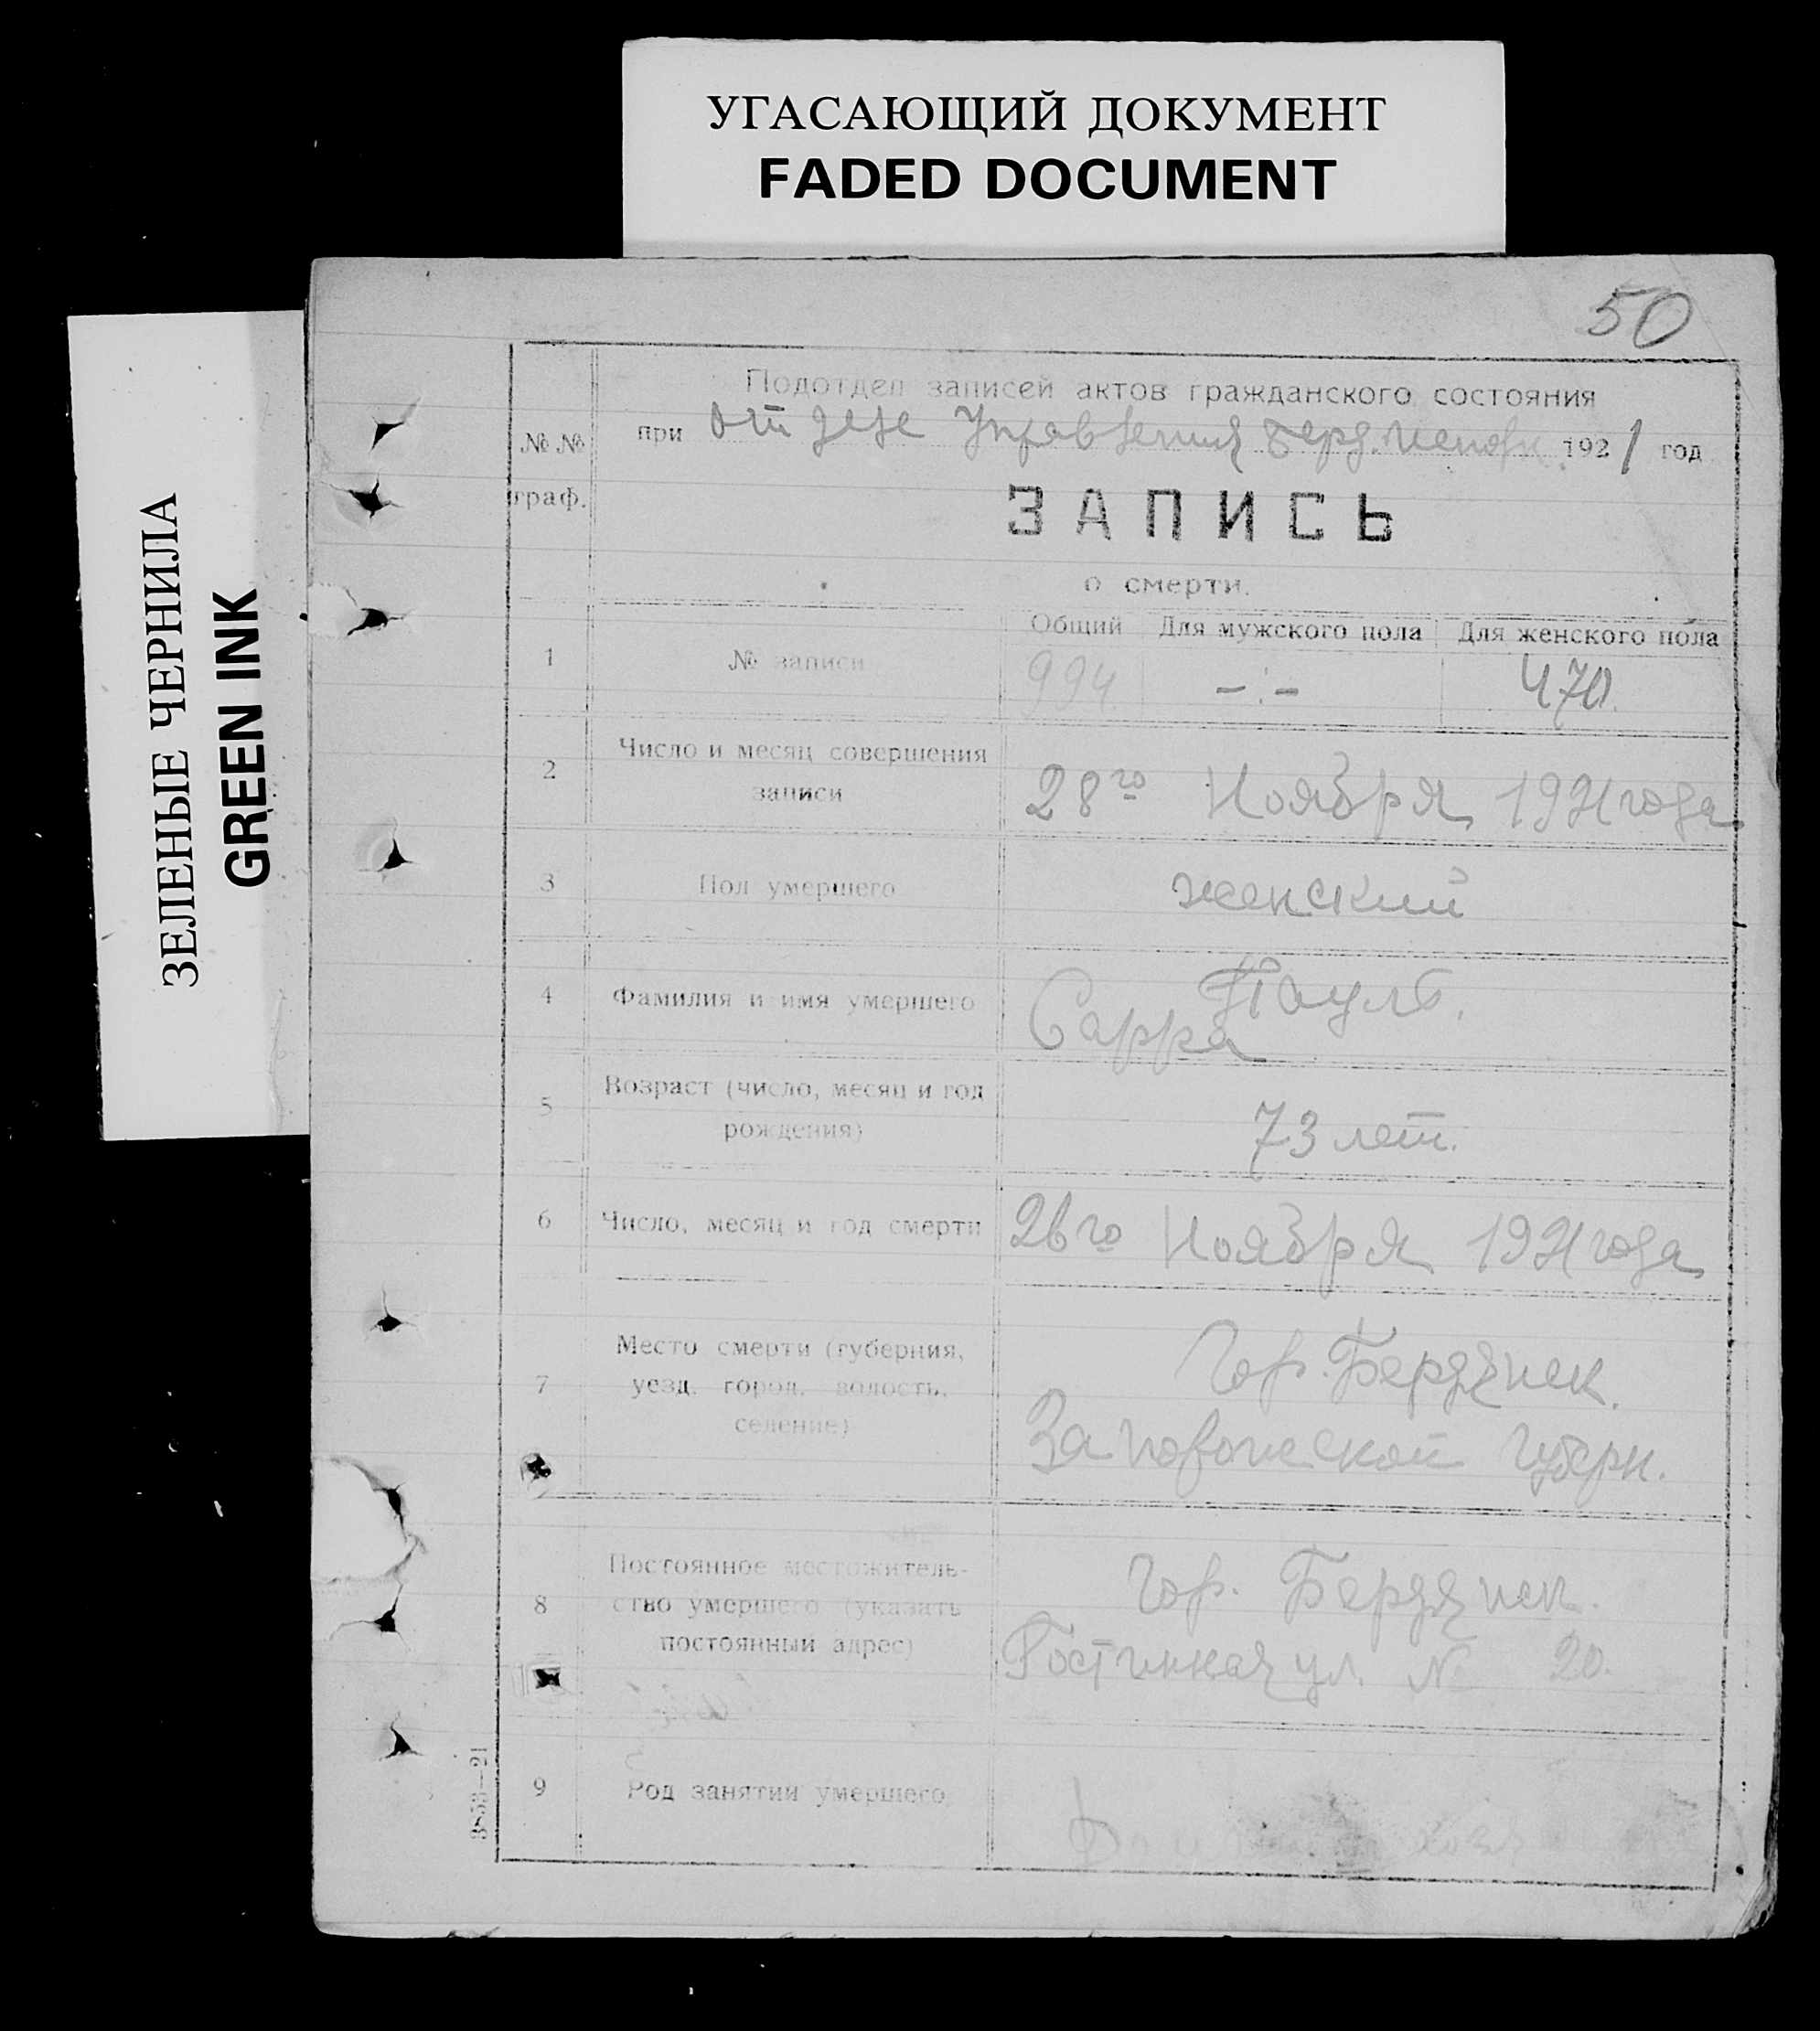 УГАСАЮЩИЙ ДОКУМЕНТ
FADED DOCUMENT
ЗЕЛЕНЫЕ ЧЕРНИЛА
GREEN INK
50
№ № граф.
Подотдел записей актов гражданского состояния
при отделе Управления 1921 год
ЗАПИСЬ
о смерти.
Общий Для мужского пола Для женского пола
1 № записи 994 -:- 470.
2 Число и месяц совершения
записи
28го Ноября 1921 года
3 Пол умершего женский
4 Фамилия и имя умершего
Паулс.
Сарра
5 Возраст (число, месяц и год
рождения)
73 лет.
6 Число, месяц и год смерти 26го Ноября 1921 года
7 Место смерти (губерния,
уезд, город, волость,
селение)
Гор. Бердянск.
губерн.
8 Постоянное местожитель-
ство умершего (указать
постоянный адрес)
Гор. Бердянск.
Гостинная ул. № 20.
9 Род занятий умершего
3853—21